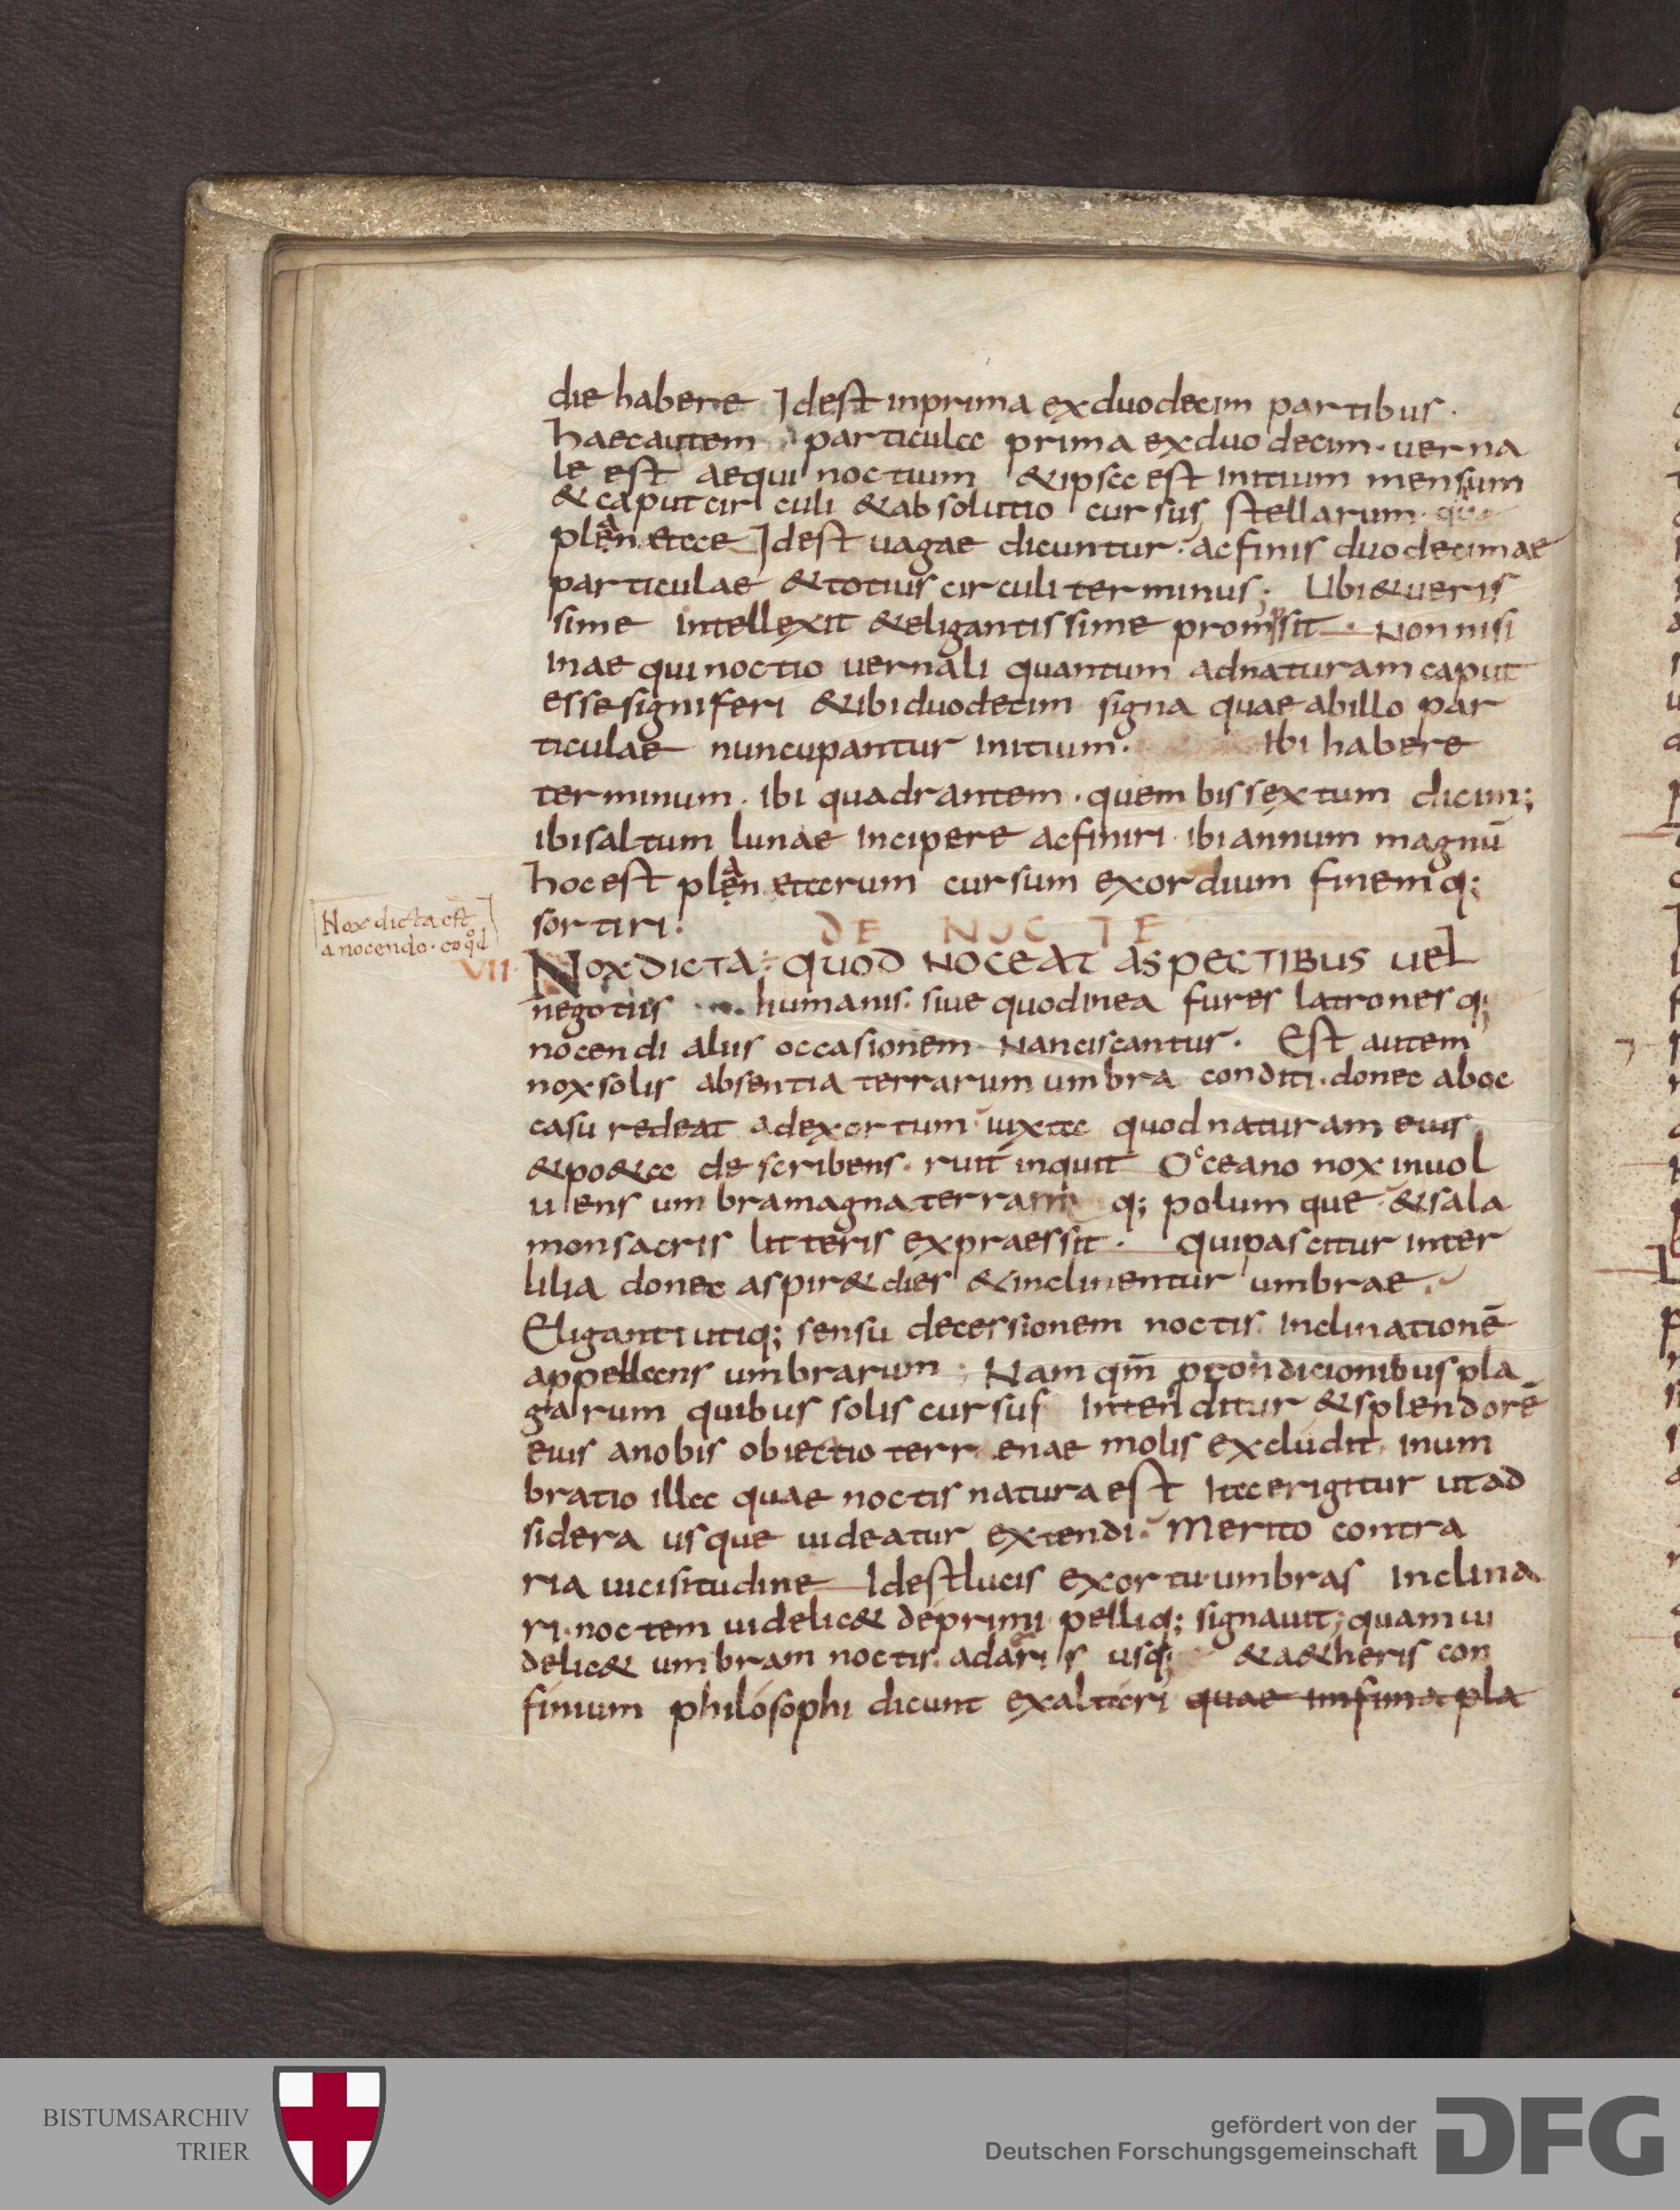 die habere Idest inprima exduodecim partibus·
haecautem particula prima exduodecim· uerna
le est aequinoctium &ipsa est initium mensum
&caput circuli &absolutio cursus stellarum quę
planetae Idest uagae dicuntur· acfinis duodecimae
particulae &totius circuli terminus; Ubi&ueris
sime intellexit &eligantissime prompsit· Nonnisi
inaequinoctio uernali quantum adnaturam caput
essesigniferi &ibiduodecim signa quaeabillo par
ticulae nuncupantur initium· ibi habere
terminum· ibi quadrantem· quem bissextum dicim;
ibisaltum lunae incipere acfiniri· ibiannum magnū
hocest planetarum cursum exordium finemq;
sortiri· DE NOCTE
Nox dicta est
a nocendo· eo qd
VII· NOXDICTA· QUOD NOCEAT ASPECTIBUS UEL
negotiis humanis· siue quodinea fures latronesq;
nocendi aliis occasionem Nanciscantur· Est autem
noxsolis absentia terrarum umbra conditi· donec aboc
casu redeat adexortum iuxta quod naturam eius
&po&a describens· ruit inquit Oceano nox inuol
uens umbramagnaterramq; polumque &sala
monsacris litteris expraessit· quipascitur inter
lilia donec aspir&dies &inclinentur umbrae·
Eliganti utiq; sensu decersionem noctis inclinationē
appellans umbrarum; Nam qm̄ pcondicionibus pla
garum quibus solis cursus intenditur &splendorē
eius anobis obiectio terrenae molis excludit inum
bratio illa quae noctis natura est Ita erigitur utad
sidera usque uideatur extendi· Merito contra
ria uicisitudine Idestlucis exortu umbras inclina
ri· noctem uidelic& deprimi pelliq; signauit; quam ui
delic& umbram noctis adaeris usq; &a&heris con
finium philosophi dicunt exaltari quae imfima pla
BISTUMSARCHIV
TRIER
gefördert von der
Deutschen Forschungsgemeinschaft
DFG